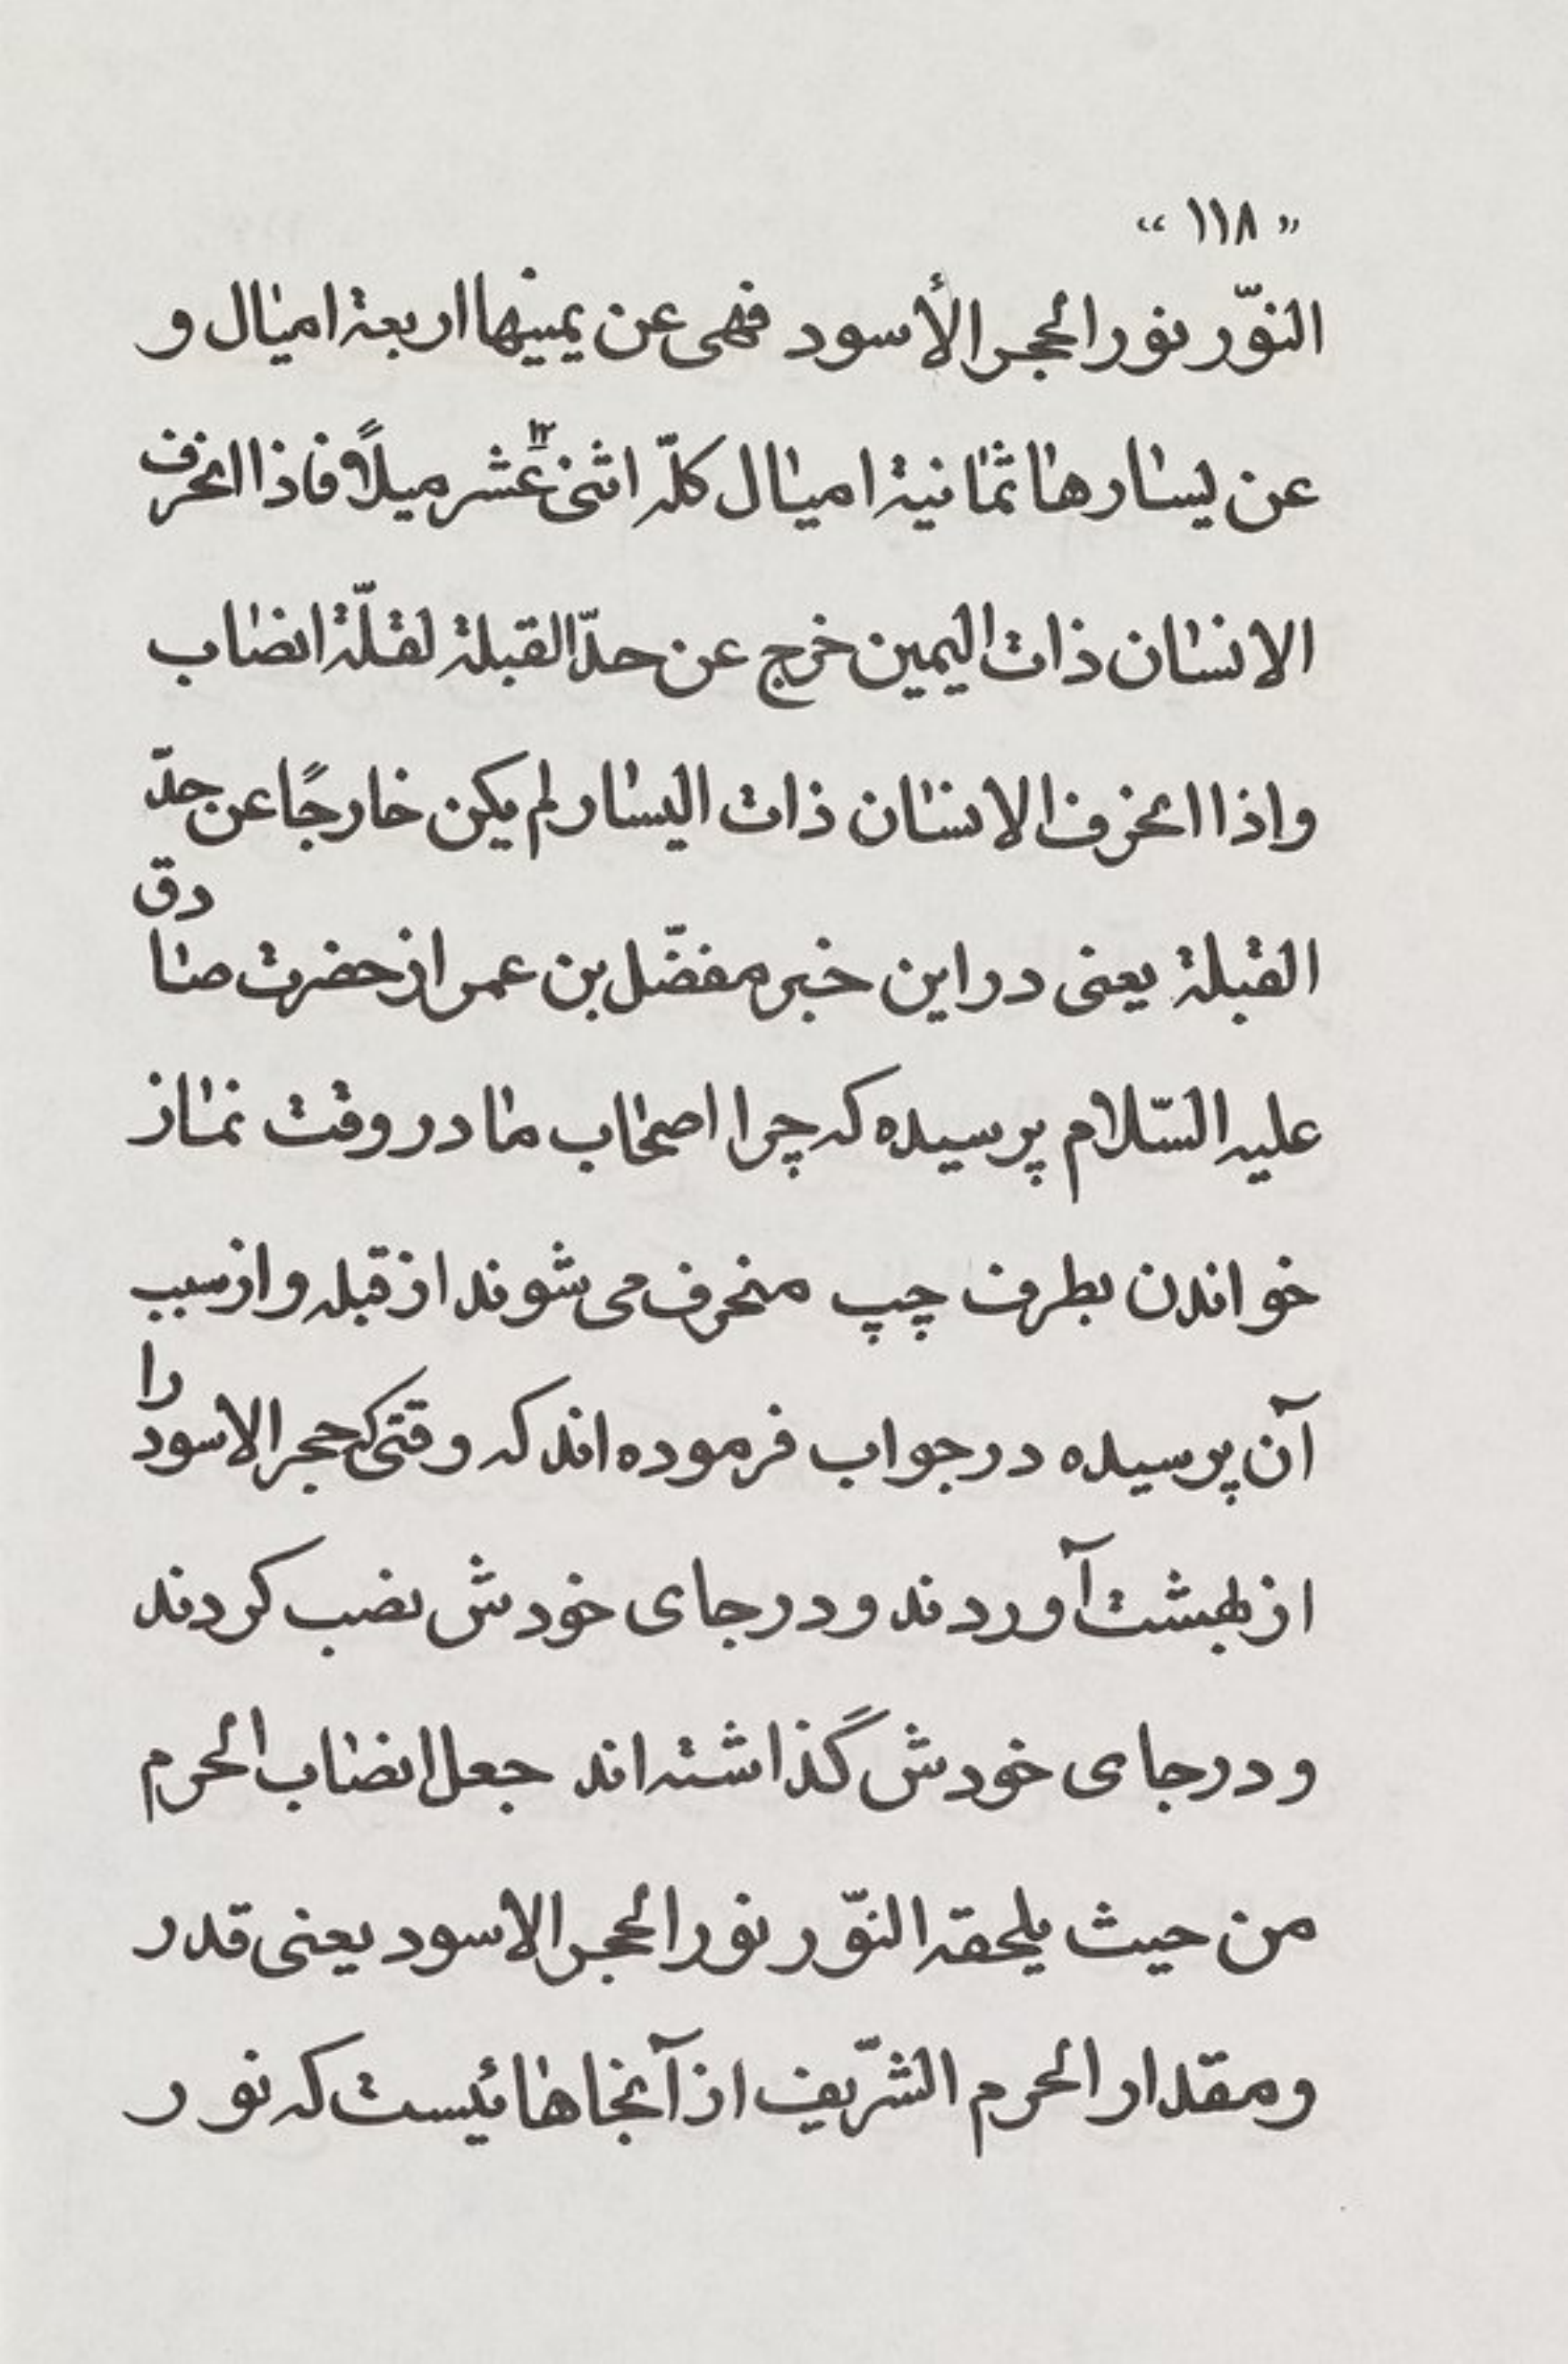 « ۱۱۸ »
النّور نور الحجر الأسود فهی عن یمینها اربعة امیال و
عن یسارها ثمانیة امیال کلّه اثنی عشر ۱۲ میلاً فاذا انحرف
الانسان ذات الیمین خرج عن حدّ القبلة لقلّة انصاب
واذا انحرف الانسان ذات الیسار لم یکن خارجًا عن حدّ
القبلة یعنی در این خبر مفضّل بن عمر از حضرت صادق
علیه السّلام پرسیده که چرا اصحاب ما در وقت نماز
خواندن بطرف چپ منحرف می شوند از قبله و از سبب
آن پرسیده در جواب فرموده اند که وقتی که حجر الاسود را
از بهشت آوردند و در جای خودش نصب کردند
و در جای خودش گذاشته اند جعل انصاب الحرم
من حیث یلحقه النّور نور الحجر الاسود یعنی قدر
و مقدار الحرم الشّریف از آنجاهائیست که نور